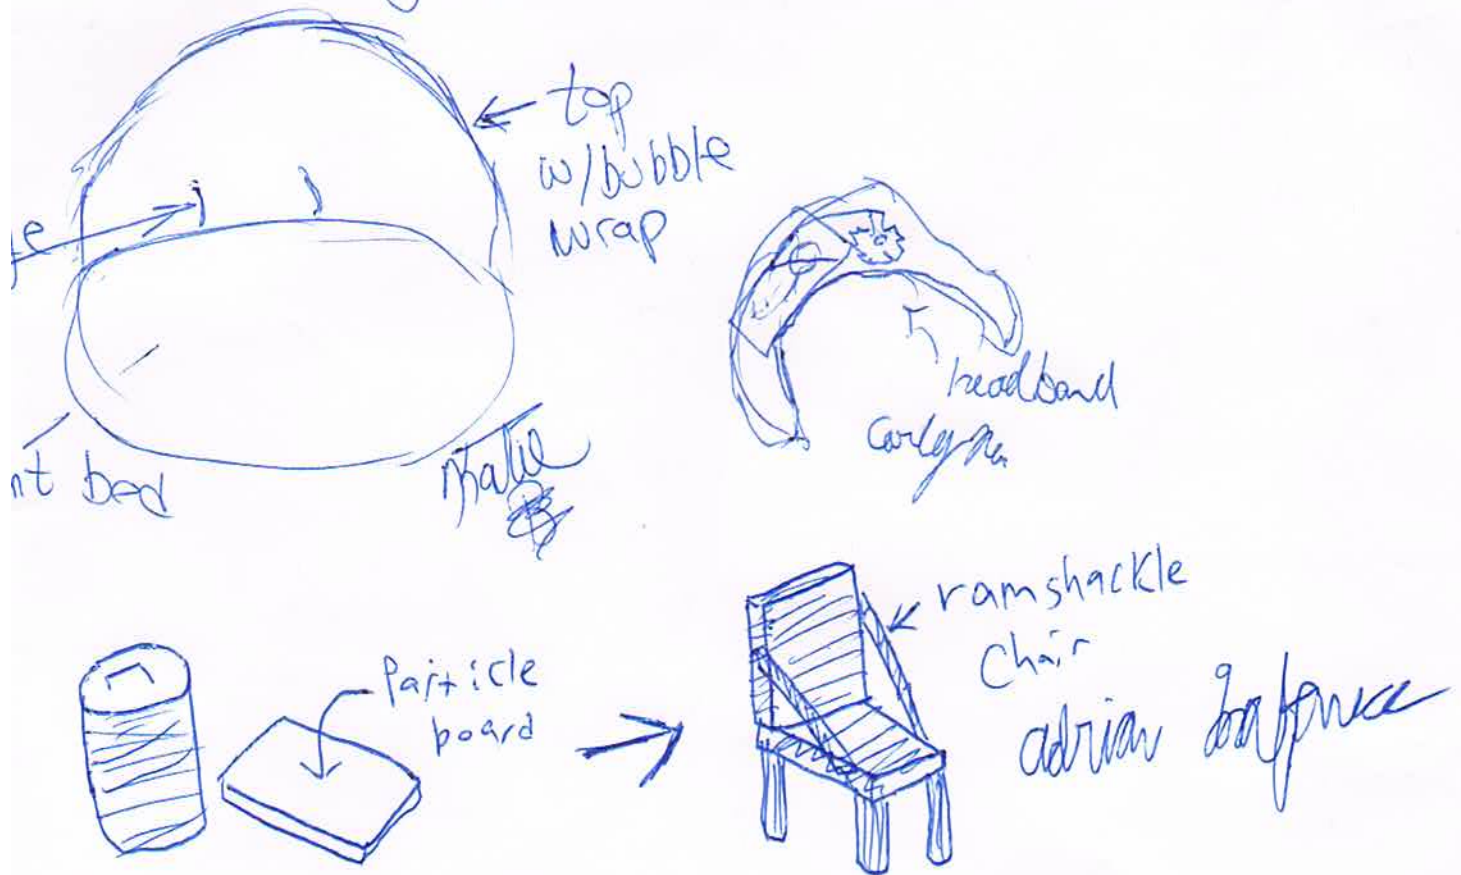 top
w/bubble
wrap
bed
Katie
headband
Particle
board
ramshackle
chair
adrian